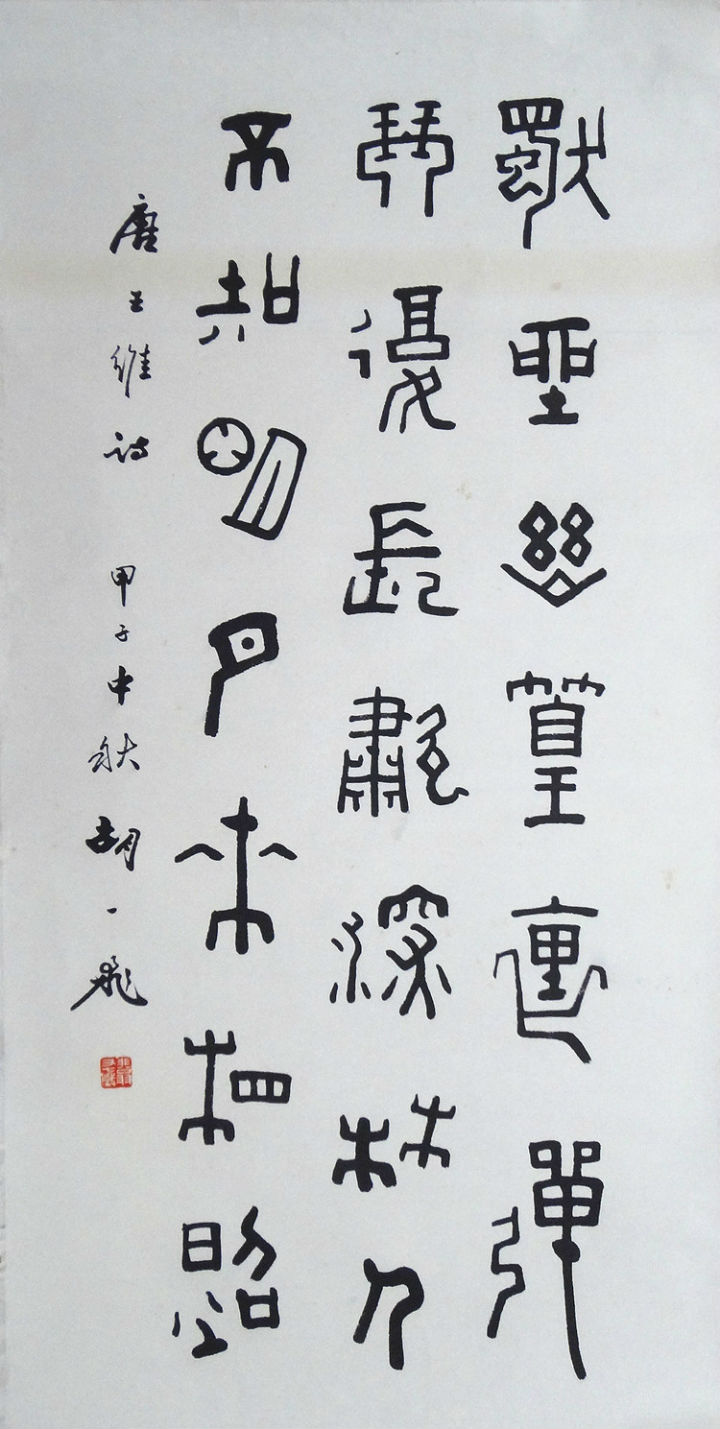 獨坐幽篁裏彈
琴復長嘯深林人
不知明月來相照
唐王維詩 甲子中秋 胡一飛